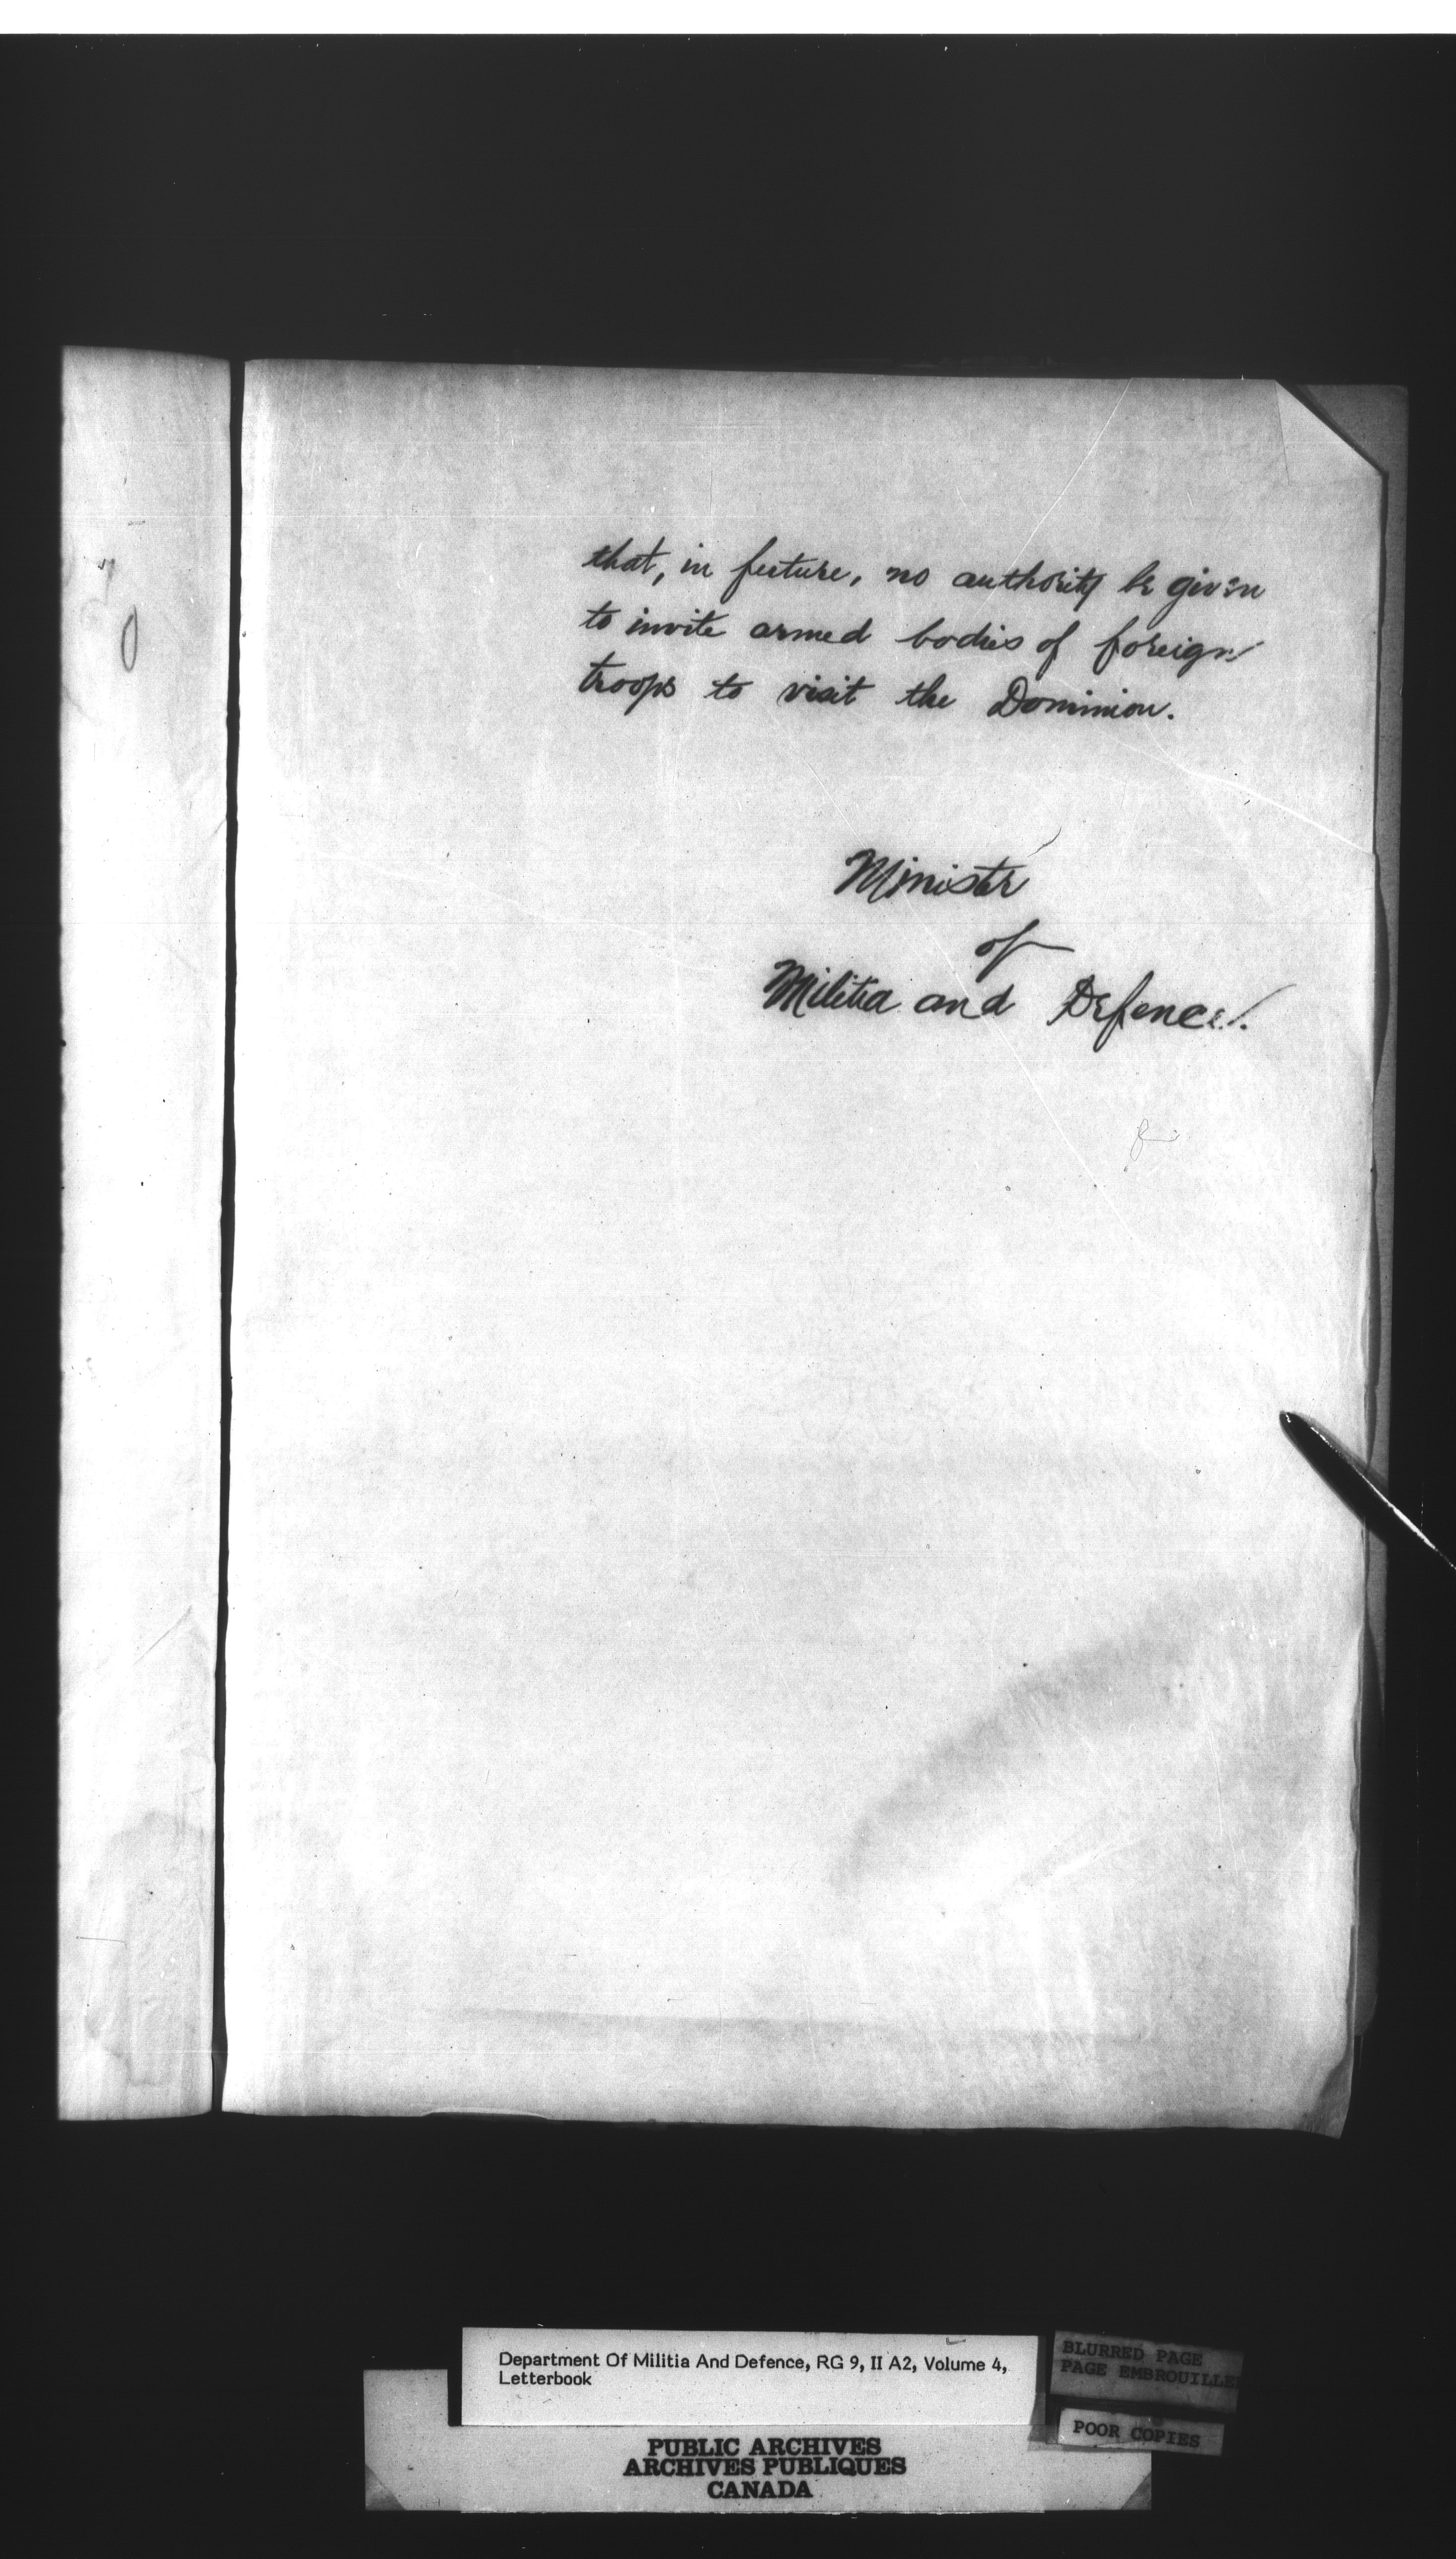 that, in future, no authority be given
to invite armed bodies of foreign
troops to visit the Dominion.
Minister
of
Militia and Defence.
Department Of Militia And Defence, RG 9, II A2, Volume 4,
Letterbook
BLURRED PAGE
PAGE EMBROUILLE
POOR COPIES
PUBLIC ARCHIVES
ARCHIVES PUBLIQUES
CANADA